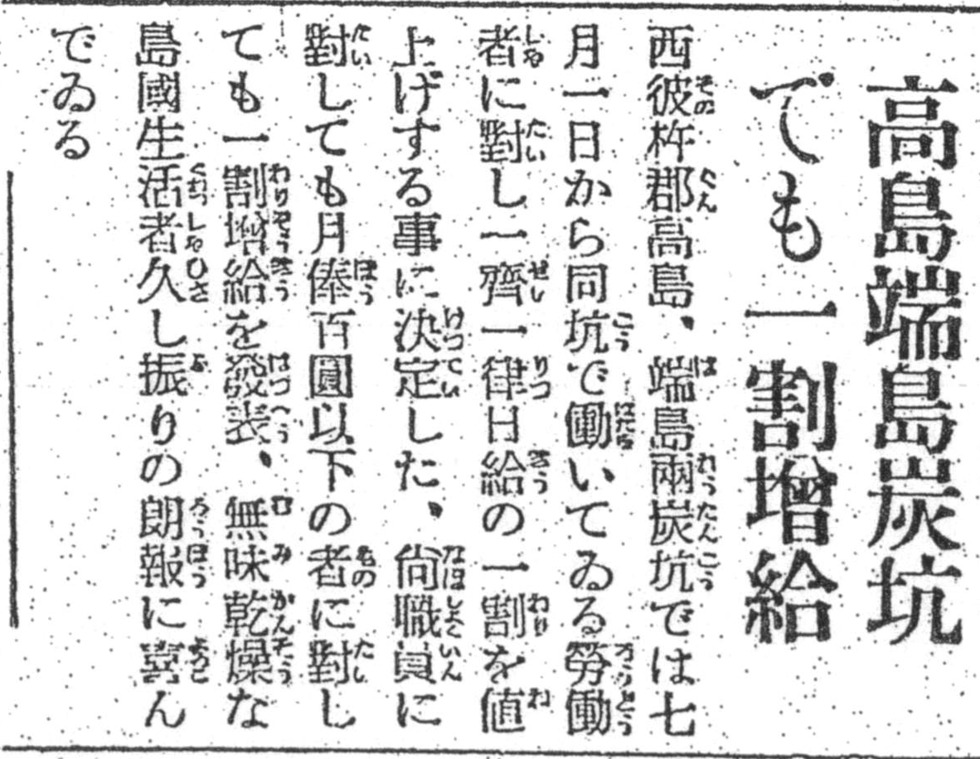 高島端島炭坑
でも一割增給
西彼杵郡高島、端島兩炭坑では七
月一日から同坑で働いてゐる勞働
者に對し一齊一律日給の一割を値
上げする事に決定した、尙職員に
對しても月俸百圓以下の者に對し
ても一割增給を發表、無味乾燥な
島國生活者久し振りの朗報に喜ん
でゐる